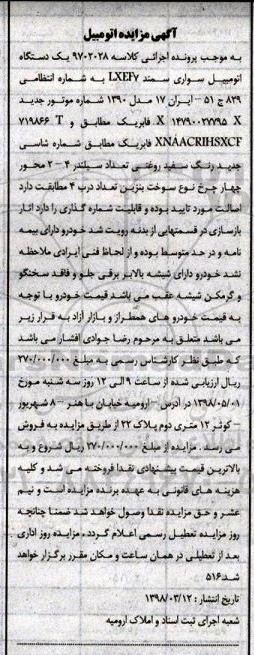 آگهی مزایده اتومبیل
به موجب پرونده اجرائی کلاسه ۹۷۰۲۰۲۸ یک دستگاه
اتومبیل سواری سمند LXEF۷ به شماره انتظامی
۸۲۹ ج ۵۱ – ایران ۱۷ مدل ۱۳۹۰ شماره موتور جدید
X ۱۴۷۹۰۰۲۷۷۹۵ X فابریک مطابق و T ۷۱۹۸۶۶
XNAACR۱HSXCF فابریک مطابق شماره شاسی
جدید رنگ سفید روغنی تعداد سیلندر ۴ – ۲ محور
چهار چرخ نوع سوخت بنزین تعداد درب ۴ مطابقت دارد
اصالت مورد تایید بوده و قابلیت شماره گذاری را دارد آثار
بازسازی در قسمتهایی از بدنه رویت شد خودرو دارای بیمه
نامه و در حد متوسط بوده و از لحاظ فنی ایرادی ملاحظه
نشد خودرو دارای شیشه بالابر برقی جلو و فاقد سخنگو
و گرمکن شیشه عقب می باشد قیمت خودرو با توجه
به قیمت خودرو های همطراز و بازار آزاد به قرار زیر
می باشد متعلق به مرحوم رضا جوادی افشار می باشد
که طبق نظر کارشناس رسمی به مبلغ ۲۷۰/۰۰۰/۰۰۰
ریال ارزیابی شده از ساعت ۹ الی ۱۲ روز سه شنبه مورخ
۱۳۹۸/۰۵/۰۱ در آدرس –ارومیه خیابان باهنر – ۸ شهریور
– کوثر ۱۲ متری دوم پلاک ۲۲ از طریق مزایده به فروش
می رسد . مزایده از مبلغ ۲۷۰/۰۰۰/۰۰۰ ریال شروع و به
بالاترین قیمت پیشنهادی نقدا فروخته می شد و کلیه
هزینه های قانونی به عهده برنده مزایده است و نیم
عشر و حق مزایده نقدا وصول خواهد شد ضمنا چنانچه
روز مزایده تعطیل رسمی اعلام گردد، مزایده روز اداری
بعد از تعطیلی در همان ساعت و مکان مقرر برگزار خواهد
شد.۵۱۶
تاریخ انتشار : ۱۳۹۸/۰۳/۱۲
شعبه اجرای ثبت اسناد و املاک ارومیه